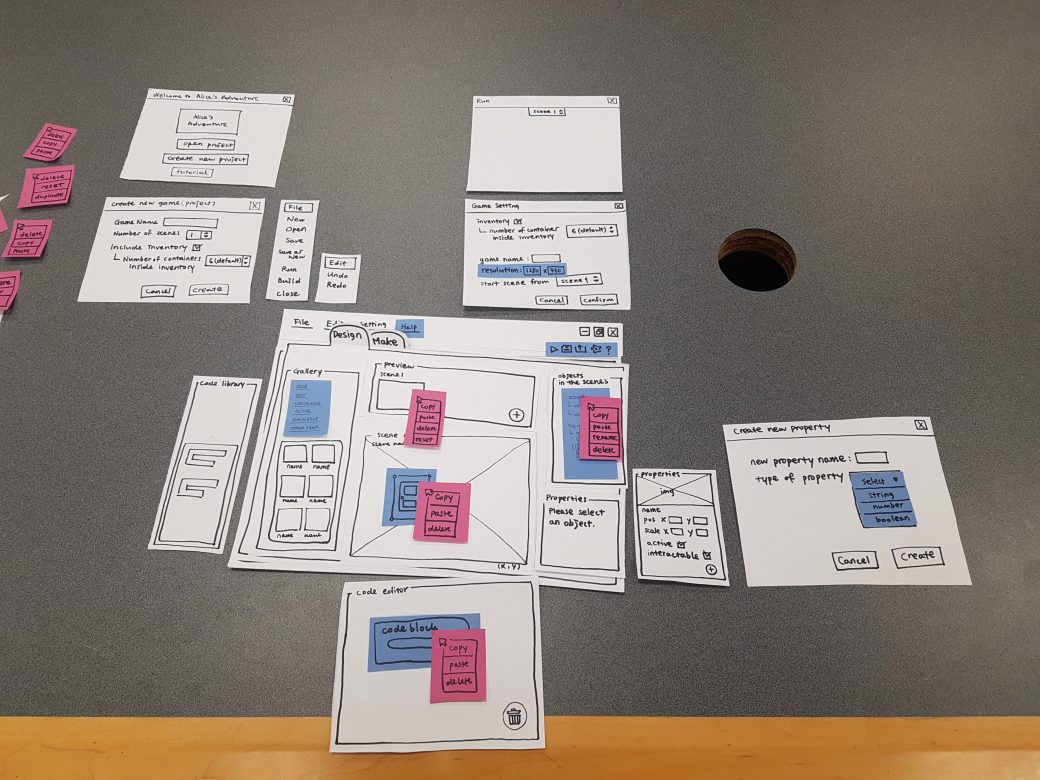 Welcome to Alice's Adventure
Alice's
Adventure
open project
create new project
tutorial
Run
scene 1
delete
copy
paste
delete
reset
duplicate
delete
copy
paste
create new game (project)
Game Name
Number of scenes 1
include inventory
Number of containers 6 (default)
inside inventory
Cancel create
File
New
Open
Save
Save as
New
Run
Build
close
Edit
Undo
Redo
Game Setting
inventory
number of container 6 (default)
inside inventory
game name :
resolution: 1280 x 720
start scene from scene 1
Cancel Confirm
File Setting Help
Design Make
?
Code library
Gallery
name name
name name
name name
preview
scene 1
copy
paste
delete
reset
scene
copy
paste
delete
(x, y)
objects
in the scenes
copy
paste
rename
delete
Properties
Please select
an object.
properties
img
name
pos x y
scale x y
active
interactable
Create new property
new property name:
type of property select
string
number
boolean
Cancel Create
code editor
code block
copy
paste
delete